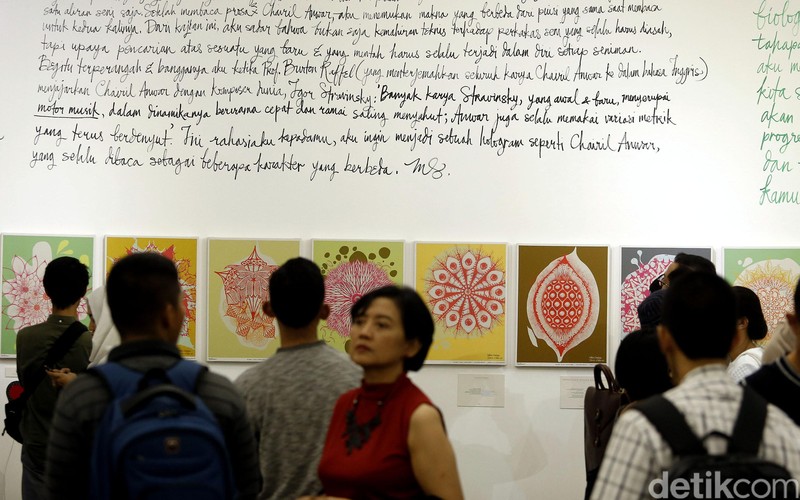 satu aliran seni saja. Setelah membaca prosa² Chairil Anwar, aku menemukan makna yang berbeda dari puisi yang sama saat membaca
untuk kedua kalinya. Dari kajian ini, aku sadar bahwa bukan saja kemahiran teknis terhadap perkakas seni yang selalu harus diasah,
tapi upaya pencarian atas sesuatu yang baru & yang mentah harus selalu terjadi dalam diri setiap seniman.
Begitu terperangah & bangganya aku ketika Prof. Burton Raffel (yang menterjemahkan seluruh karya Chairil Anwar ke dalam bahasa Inggris)
menyejajarkan Chairil Anwar dengan komposer dunia, Igor Stravinsky: 'Banyak karya Stravinsky, yang awal & baru, menyerupai
motor musik, dalam dinamikanya berirama cepat dan ramai saling menyahut; Anwar juga selalu memakai variasi metrik
yang terus berdenyut'. Ini rahasiaku kepadamu, aku ingin menjadi sebuah hologram seperti Chairil Anwar,
yang selalu dibaca sebagai beberapa karakter yang berbeda. MG.
biolog
tahapa
aku m
kita s
akan
progre
dan -
kamu
detikcom